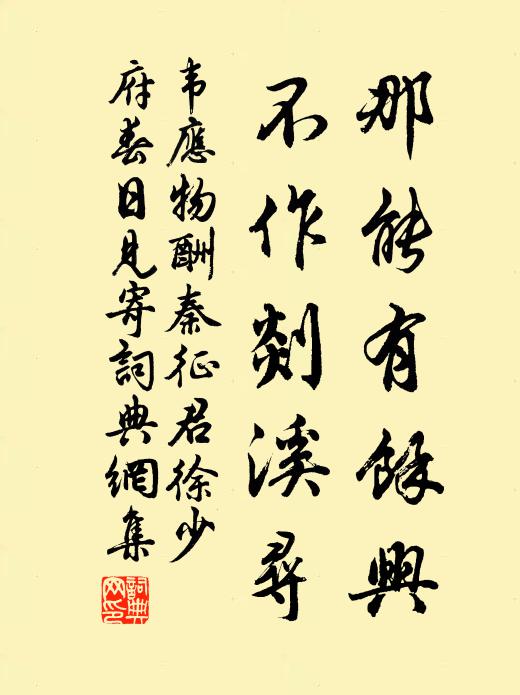 那能有餘興
不作剡溪尋
韦應物酬秦征君徐少
府春日見寄詞典網集
詞典
网印